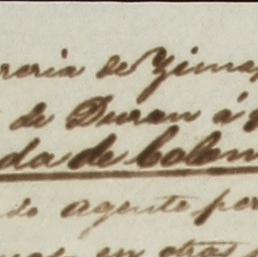 reria de Zima
de Duran á
da de Colom
do agente por
en otras